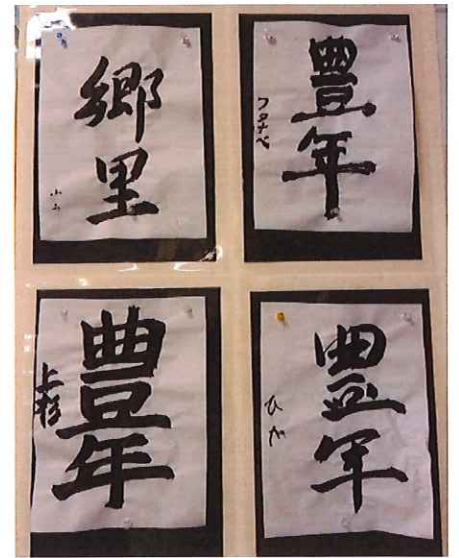 郷里
小山
豊年
ワタナベ
豊年
上杉
豊年
ひが